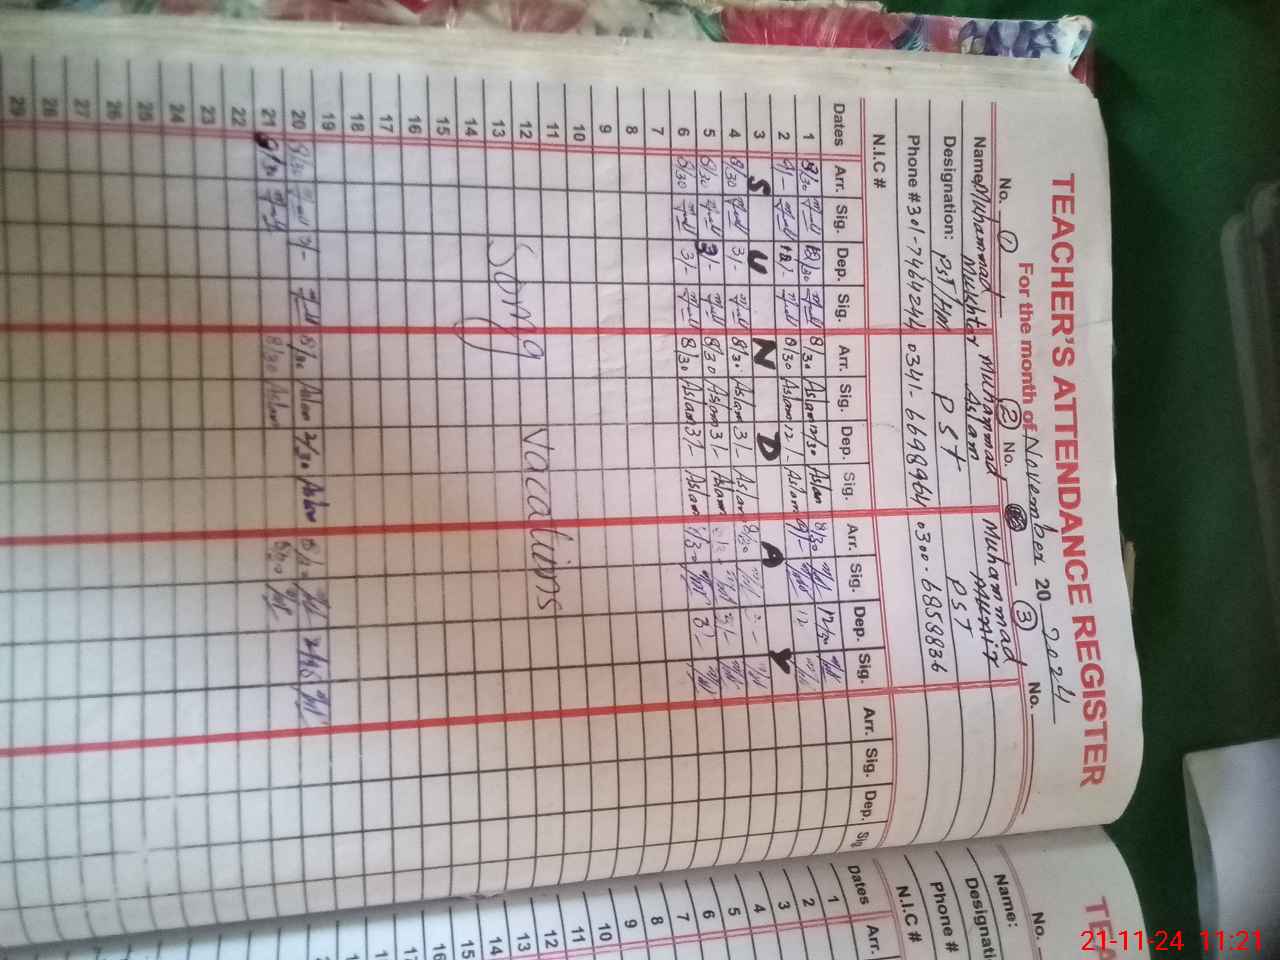 TEACHER'S ATTENDANCE REGISTER
For the month of November 20 2024
No. 1 No. 2 No. 3 No.
Name: Muhammad Mukhtar Muhammad Aslam Muhammad Munir
Designation: PST/HM PST PST
Phone # 301-7464244 0341-6698964 0300-6858836
N.I.C #
Dates Arr. Sig. Dep. Sig. Arr. Sig. Dep. Sig. Arr. Sig. Dep. Sig. Arr. Sig. Dep. Sig
1 8/30 12/30 8/30 Aslam 12/30 Aslam 8/30 12/30
2 9/- 12/- 8/30 Aslam 12/- Aslam 9/- 12
3 S U N D A Y
4 8/30 3/- 8/30 Aslam 3/- Aslam 8/30
5 8/30 3/- 8/30 Aslam 3/- Aslam 3/-
6 8/30 3/- 8/30 Aslam 3/- Aslam 8/30 3/-
7
8
9
10
11
12 Smog Vacations
13
14
15
16
17
18
19
20 8/30 3/- 8/30 Aslam 2/30 Aslam
21 8/30 8/30 Aslam
22
23
24
25
26
27
28
29
TEA
No.
Name:
Designati
Phone #
N.I.C #
Dates Arr.
1
2
3
4
5
6
7
8
9
10
11
12
13
14
15
16
17
21-11-24 11:21